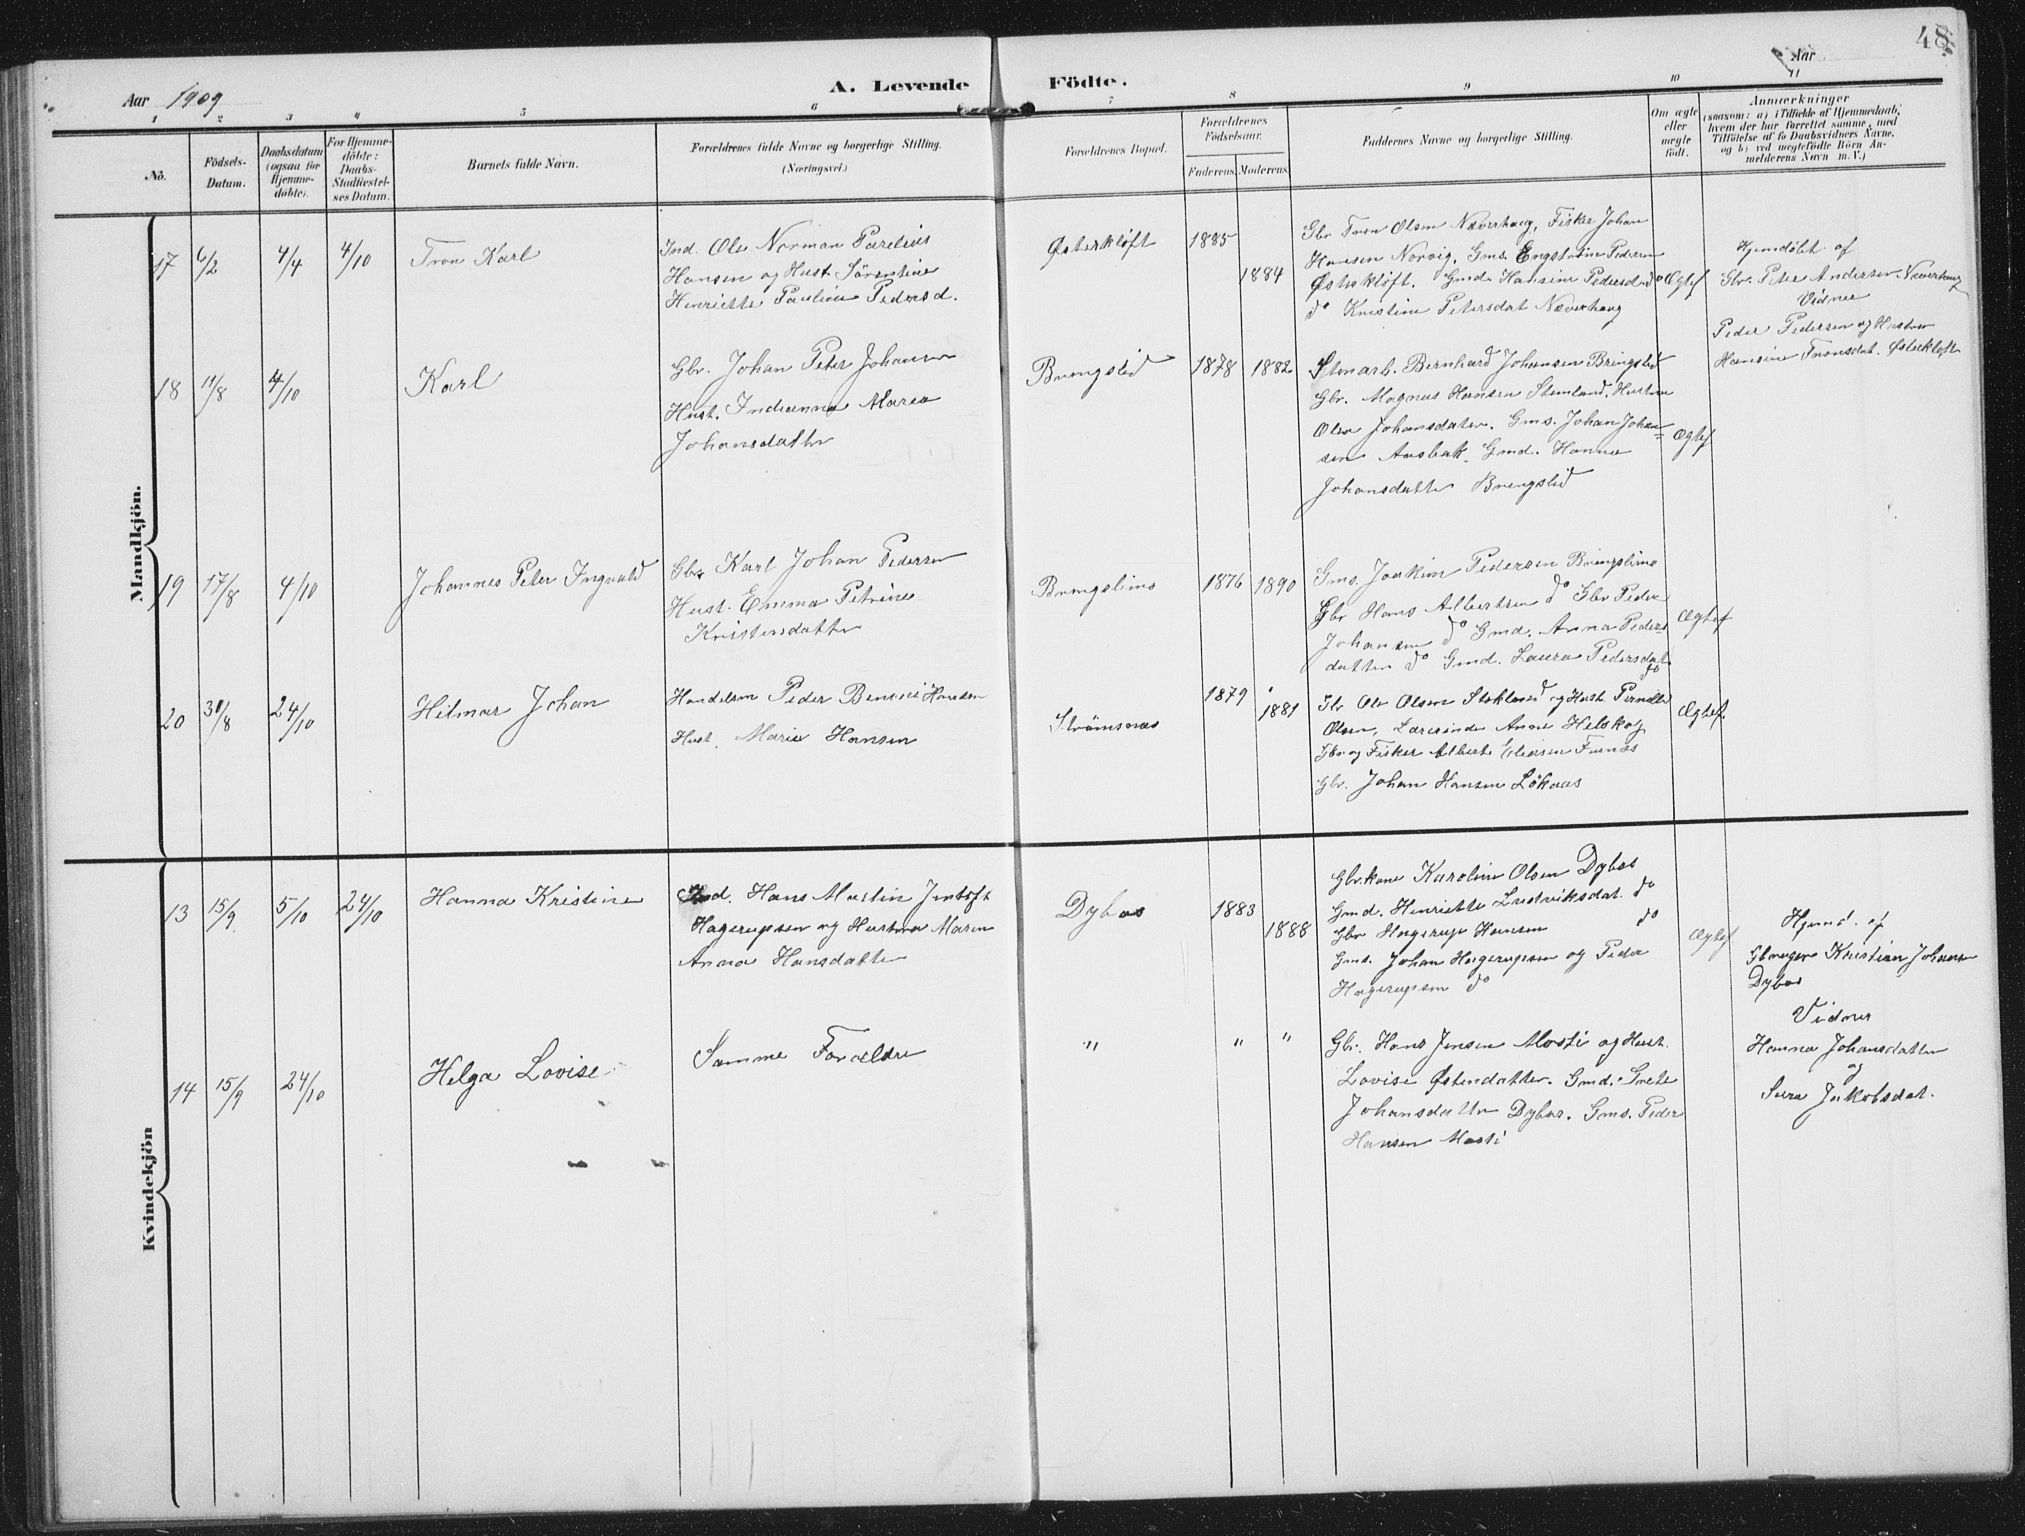 48.
Aar 1909
A. Levende Födte.
Aar
1 2 3 4 5 6 7 8 9 10 11
No.
Födsels-
Datum.
Daabsdatum
(ogsaa for
Hjemme-
döbte).
For Hjemme-
döbte:
Daabs-
Stadfæstel-
ses Datum.
Barnets fulde Navn.
Forældrenes fulde Navne og borgerlige Stilling.
(Næringsvei.)
Forældrenes Bopæl.
Forældrenes
Födselsaar.
Faderens. Moderens.
Faddernes Navne og borgerlige Stilling.
Om ægte
eller
uægte
födt.
Anmærkninger
(saasom: a) i Tilfælde af Hjemmedaab,
hvem der har forrettet samme, med
Tilföielse af to Daabsvidners Navne.
og b) ved uægtefödte Börn An-
melderens Navn m. V.)
Mandkjön.
17 6/2 4/4 4/10
Tron Karl
Ind. Ole Norman Parelius
Hansen og Hust. Sörentine
Henriette Pauline Pedersd.
Østerkløft
1885
1884
Gbr Tron Olsen Næverhaug, Fisker Johan
Hansen Norvig, Gms. Engström Pedersen
Østerkløft. Gmd. Hansine Pedersdat do
do Kristine Petersdat Næverhaug
Ægtef
Hjemdöbt af
Gbr. Peter Andersen Næverhaug
Vidner
Peder Pedersen og Hustru
Hansine Tronsdat. Østerkløft
18 11/8 4/10
Karl
Gbr. Johan Peter Johansen
Hust. Indianna Marea
Johansdatter
Bringslid
1878 1882
Stenarb. Bernhard Johansen Bringslid
Gbr. Magnus Hansen Stemland, Hustru
Olea Johansdatter. Gms. Johan Johan-
sen Aasbak. Gmd. Hanna
Johansdatter Bringslid
Ægtef
19 17/8 4/10
Johannes Peter Ingvald
Gbr Karl Johan Pedersen
Hust. Emma Petrine
Kristensdatter
Bringslimo
1876 1890
Gms. Joakim Pedersen Bringslimo
Gbr Hans Albertsen do Gbr Peder
Johansen do Gmd. Anna Peders
datter do Gmd. Laura Pedersdat
do
Ægtef
20 31/8 24/10
Hilmar Johan
Handelsm Peder Benoni Hansen
Hust. Marie Hansen
Strömsnas
1879
1881
Gbr Ole Olsen Stokland og Hust. Pernille
Olsen, Lærerinde Anne Helskog
Gbr og Fisker Albert Eliasen Furnas
Gbr. Johan Hansen Löknas
Ægtef.
Kvindekjön
13 15/9 5/10 24/10
Hanna Kristine
Ind. Hans Martin Jentoft
Hagerupsen og Hustru Maren
Anna Hansdatter
Dybos
1883
1888
Gbr.kone Karoline Olsen Dybos
Gmd. Henriette Ludviksdat. do
Gbr Hagerup Hansen do
Gms. Johan Hagerupsen og Peder
Hagerupsen do
Ægtef.
Hjemd. af
Gbruger Kristian Johansen
Dybos
Vidner
Hanna Johansdatter
og
Sara Jakobsdat.
14 15/9 24/10
Helga Lovise
Samme Forældre
" " "
Gbr. Hans Jensen Mosti og Hust.
Lovise Østensdatter. Gmd. Grete
Johansdatter Dybos. Gms. Peder
Hansen Mosti